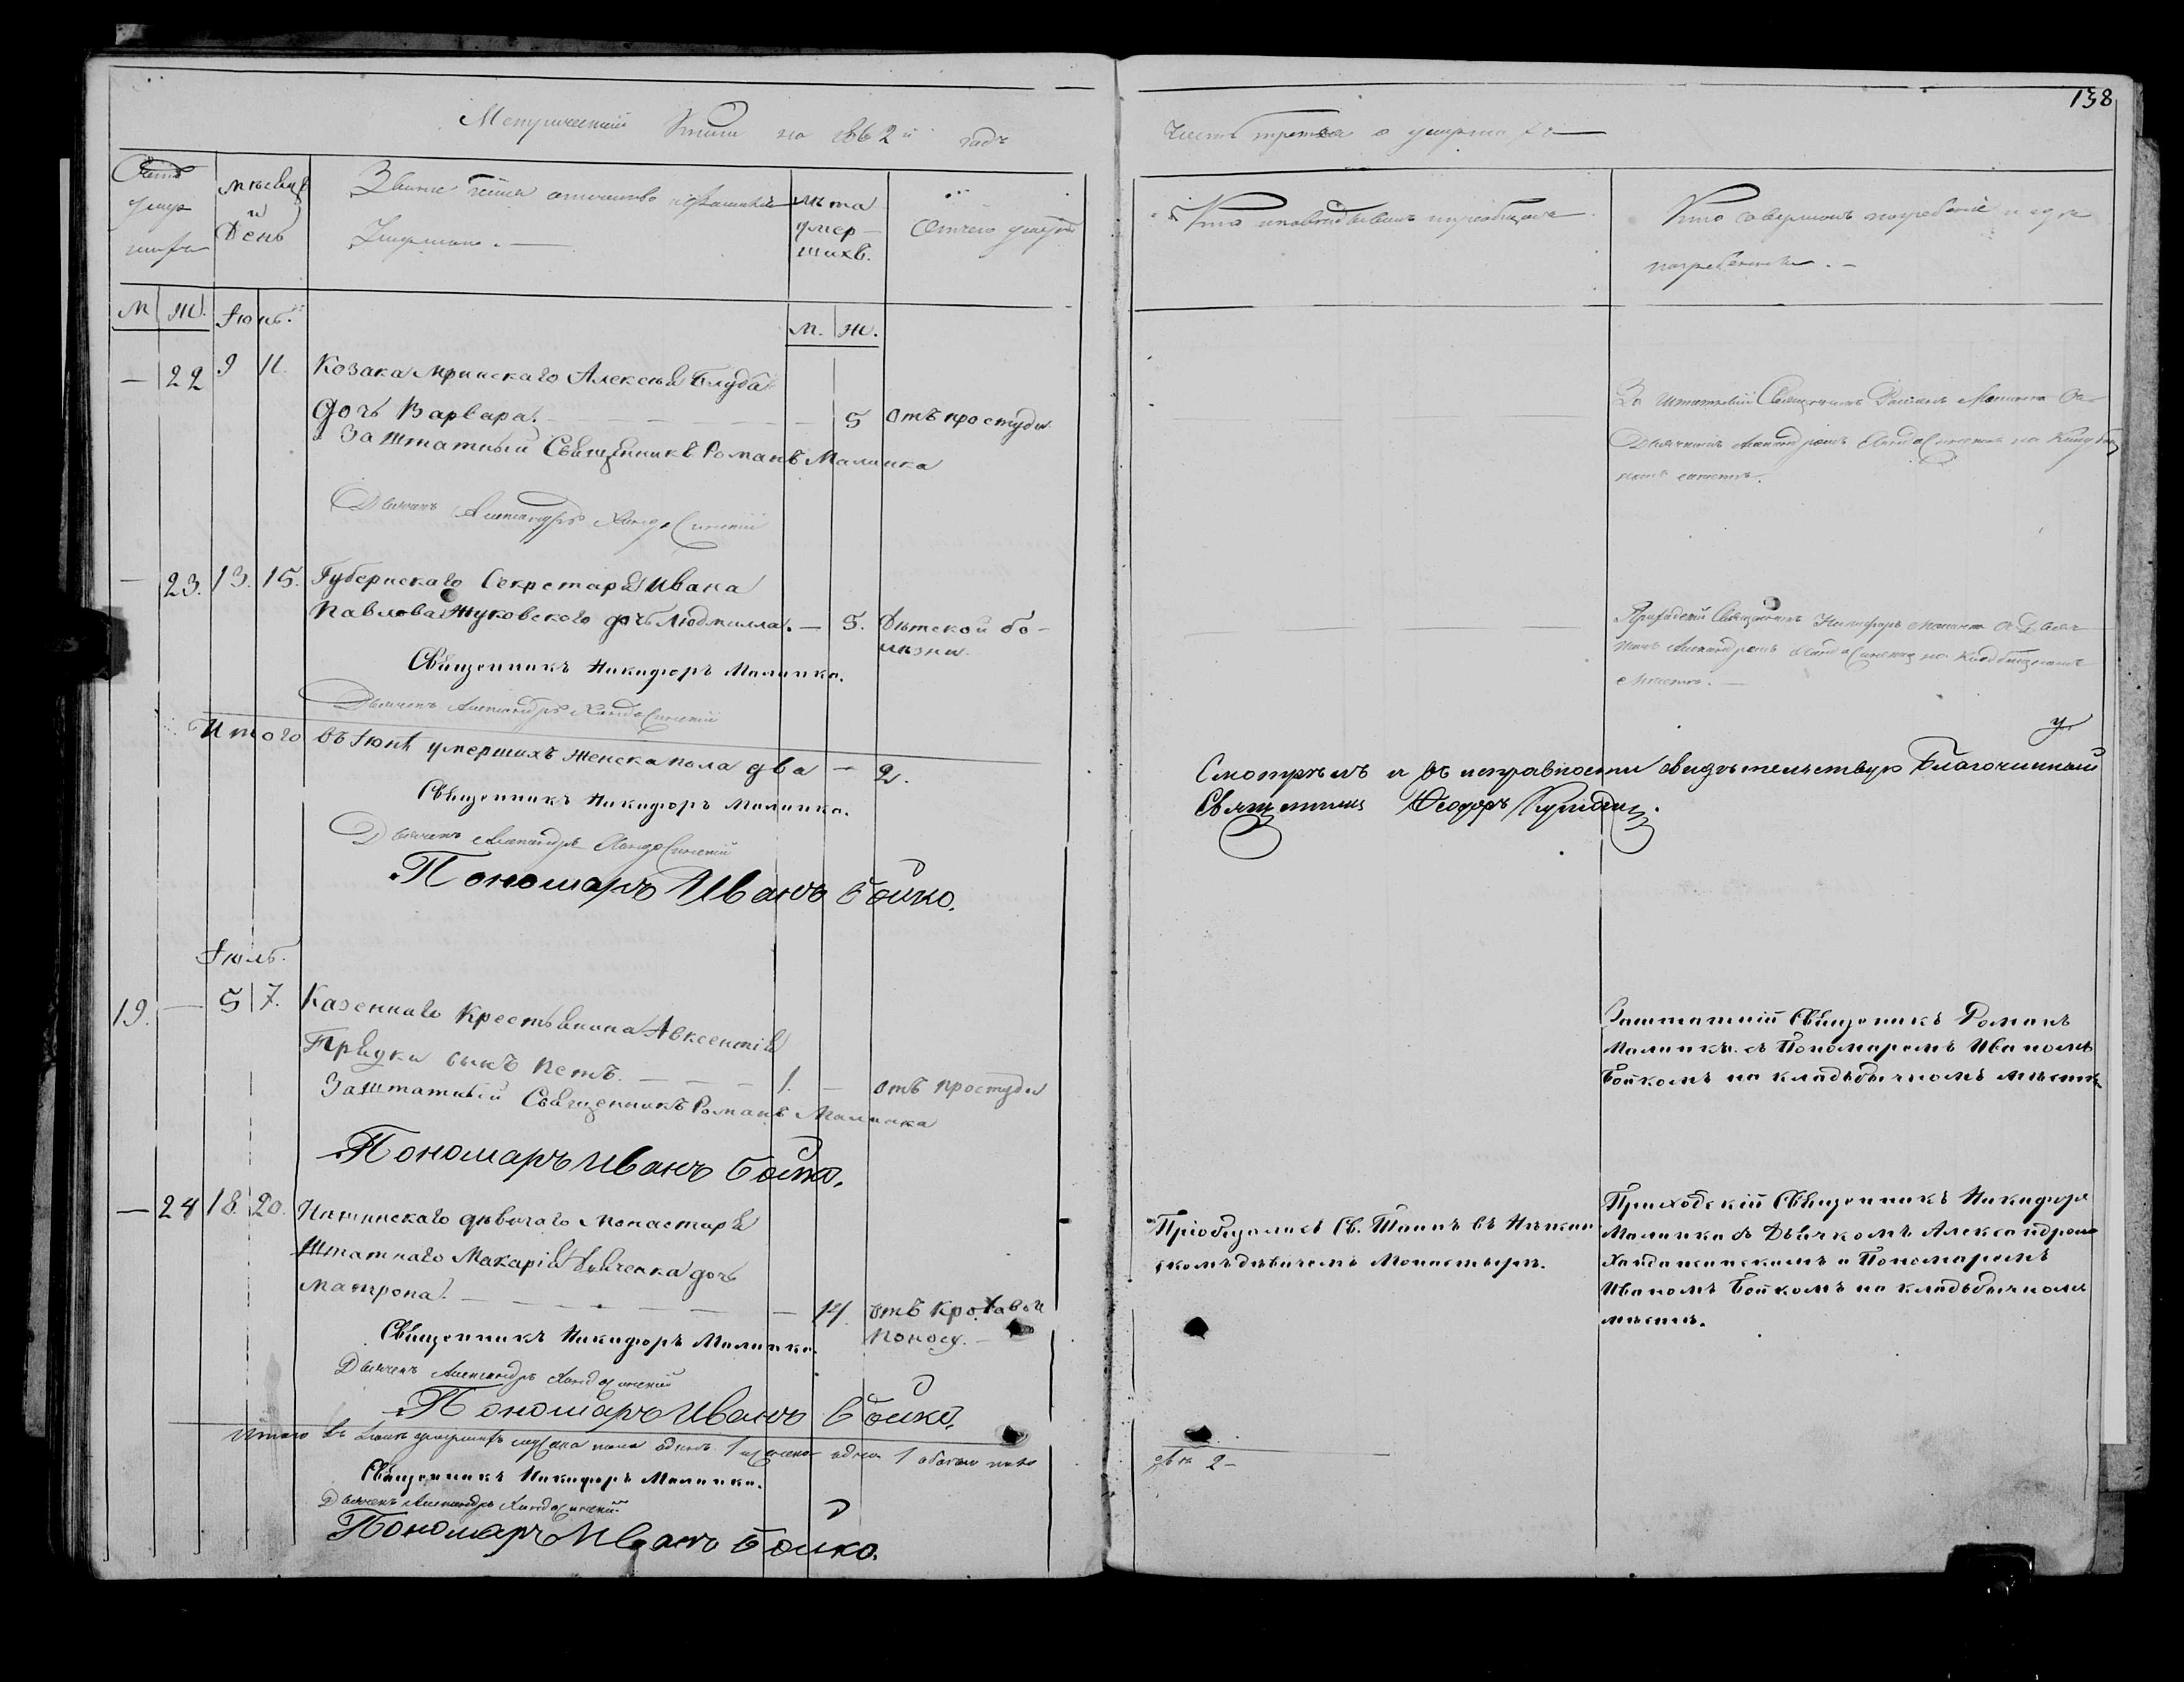 138
Метрической Книги на 1862й годъ
Часть третья о умершихъ
Счетъ умер шихъ
мѣсяцъ и День
Званіе имя отчество и фамилія Умершаго.
лѣта умер- шихъ.
Отчего умеръ
Кто исповѣдывалъ и пріобщалъ
Кто совершалъ погребеніе и гдѣ погребенъ.
М. Ж. Іюнь. М. Ж.
— 22 9 11. Козака Мринскаго Алексѣя Блуда
дочь Варвара. — 5 отъ простуды
Заштатный Священникъ Романъ Малинка
Дьячекъ Александръ
За Штатный Священникъ Романъ Малинка съ
Дьячкомъ Александромъ на Кладбищ
номъ мѣстѣ.
— 23. 13. 15. Губернскаго Секретаря Ивана
Павлова Жуковского дочь Людмилла. — 5. Дѣтской бо-
лѣзни.
Священникъ Никифоръ Малинка.
Дьячекъ Александръ
Приходскій Священникъ Никифоръ Малинка съ Дьяч
комъ Александромъ на Кладбищномъ
мѣстѣ.
Итого въ Іюнѣ умершихъ женска пола два — 2.
Священникъ Никифоръ Малинка.
Дьячекъ Александръ
Пономарь Иванъ Бойко.
Смотрѣлъ и въ исправности свидѣтельствую Благочинный
Священникъ Ѳеодоръ
Іюль.
19. — 5 7. Казеннаго Крестьянина Авксентія
Прядки сынъ Петъ. — 1. — отъ простуды
Заштатный Священникъ Романъ Малинка
Пономарь Иванъ Бойко.
Заштатній Священикъ Романъ
Малинка съ Пономаремъ Иваномъ
Бойкомъ на кладьбычномъ мѣстѣ
— 24 18. 20. дѣвичаго Монастыря
Штатнаго Макарія дочь
Матрона. — 14. отъ кровавой
поносу.
Священникъ Никифоръ Малинка.
Дьячекъ Александръ
Пономарь Иванъ Бойко.
Пріобщалась Св. Таинъ въ
скомъ дѣвичемъ Монастырѣ.
Приходскій Священникъ Никифоръ
Малинка съ Дьячкомъ Александромъ
и Пономаремъ
Иваномъ Бойкомъ на кладьбычномъ
мѣстѣ.
Итого въ Іюлѣ умершихъ мужска пола одинъ 1 женска одна 1 обоего пола
два 2—
Священникъ Никифоръ Малинка.
Дьячекъ Александръ
Пономарь Иванъ Бойко.